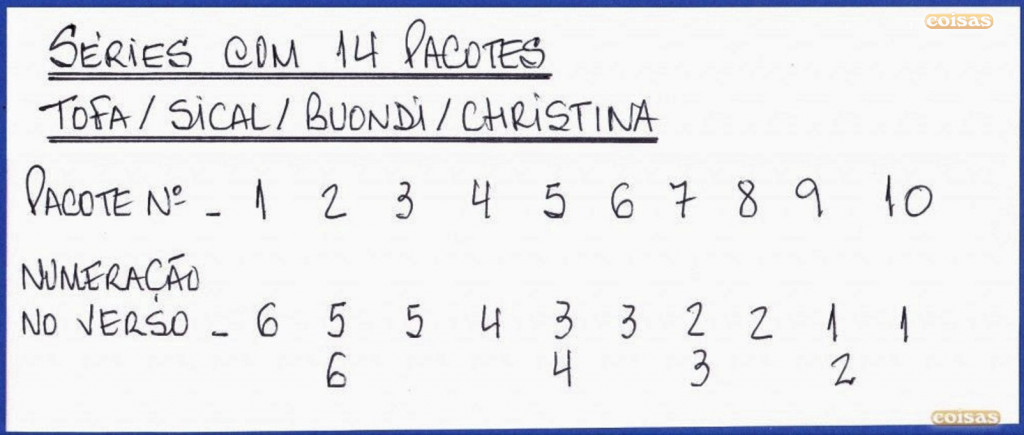 coisas
SÉRIES COM 14 PACOTES
TOFA / SICAL / BUONDI / CHRISTINA
PACOTE Nº - 1 2 3 4 5 6 7 8 9 10
NUMERAÇÃO
NO VERSO - 6 5 5 4 3 3 2 2 1 1
6 4 3 2
coisas